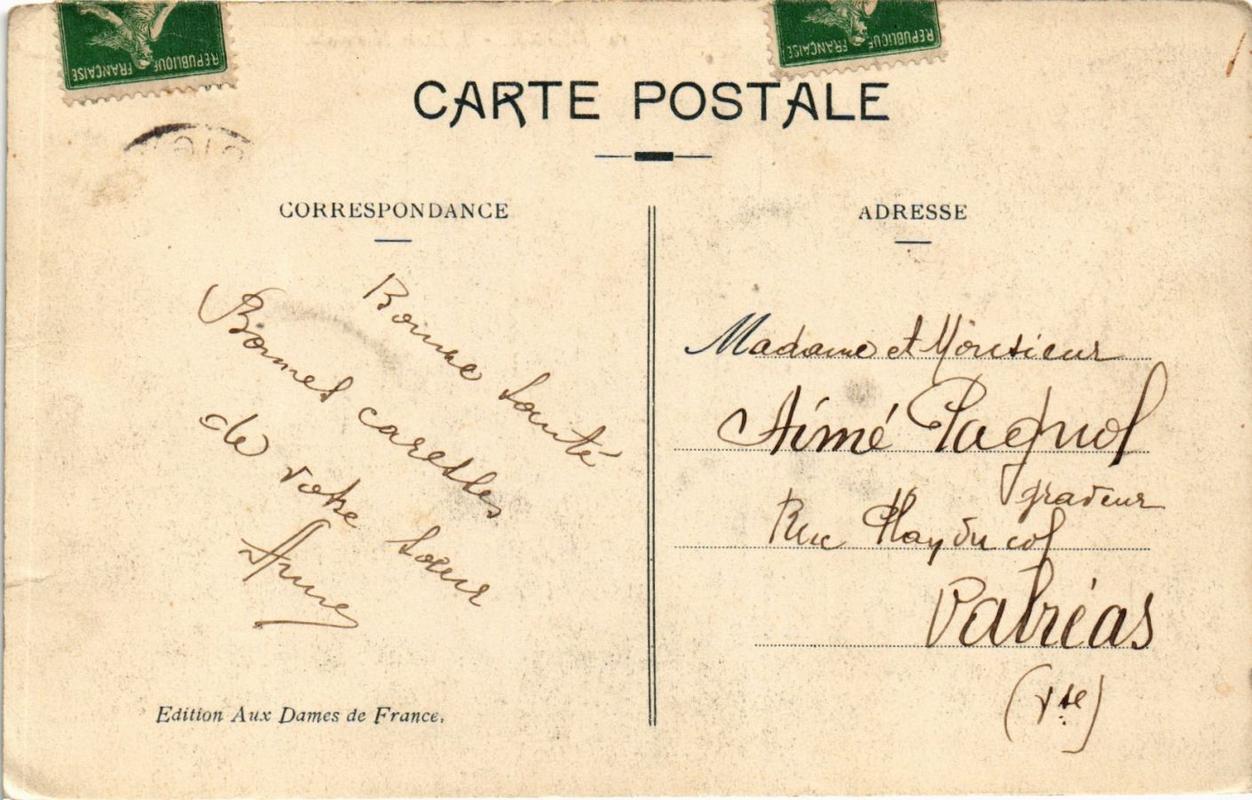 REPUBLIQUE FRANÇAISE
REPUBLIQUE FRANÇAISE
CARTE POSTALE
CORRESPONDANCE
Bonne Santé
Bonnes caresses
de votre Sœur
Anne
Edition Aux Dames de France.
ADRESSE
Madame et Monsieur
Aimé Pagnol
graveur
Rue
Valréas
(Vse)